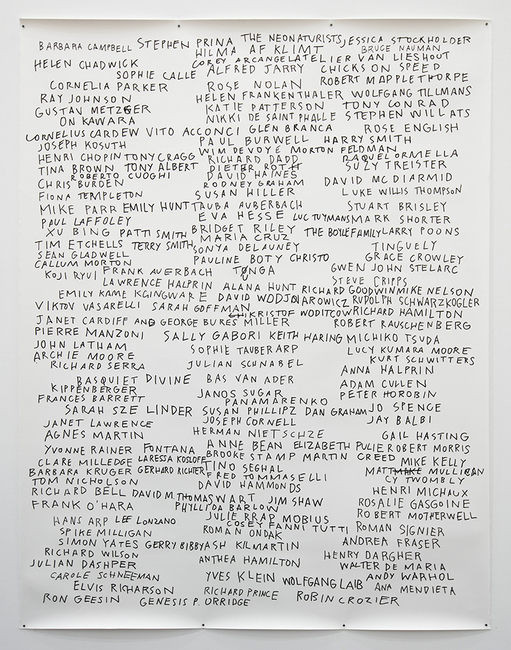 BARBARA CAMPBELL STEPHEN PRINA THE NEONATURISTS, JESSICA STOCKHOLDER
HILMA AF KLIMT BRUCE NAUMAN
HELEN CHADWICK COREY ARCANGEL ATELIER VAN LIESHOUT
SOPHIE CALLE ALFRED JARRY CHICKS ON SPEED
CORNELIA PARKER ROSE NOLAN ROBERT MAPPLETHORPE
RAY JOHNSON HELEN FRANKENTHALER WOLFGANG TILLMANS
GUSTAN METZGER KATIE PATTERSON TONY CONRAD
ON KAWARA NIKKI DE SAINT PHALLE STEPHEN WILLATS
CORNELIUS CARDEW VITO ACCONCI GLEN BRANCA ROSE ENGLISH
JOSEPH KOSUTH PAUL BURWELL HARRY SMITH
WIM DEVOYE MORTON FELDMAN
HENRI CHOPIN TONY CRAGG RICHARD DADD RAQUEL ORMELLA
TINA BROWN TONY ALBERT DIETER ROTH SUZY TREISTER
ROBERTO CUOGHI DAVID HAINES
CHRIS BURDEN RODNEY GRAHAM DAVID MCDIARMID
FIONA TEMPLETON SUSAN HILLER LUKE WILLIS THOMPSON
MIKE PARR EMILY HUNT TAUBA AUERBACH STUART BRISLEY
PAUL LAFFOLEY EVA HESSE LUC TUYMANS MARK SHORTER
XU BING PATTI SMITH BRIDGET RILEY THE BOYLE FAMILY LARRY POONS
MARIA CRUZ
TIM ETCHELLS TERRY SMITH SONYA DELAUNEY TINGUELY
SEAN GLADWELL PAULINE BOTY CHRISTO GRACE CROWLEY
CALLUM MORTON
KOJI RYUI FRANK AUERBACH TONGA GWEN JOHN STELARC
STEVE CRIPPS
LAWRENCE HALPRIN ALANA HUNT RICHARD GOODWIN MIKE NELSON
EMILY KAME KGINGWARE DAVID WODJOJAROWICZ RUDOLPH SCHWARZKOGLER
VIKTOV VASARELLI SARAH GOFFMAN KRISTOF WODITCOW RICHARD HAMILTON
JANET CARDIFF AND GEORGE BURES MILLER ROBERT RAUSCHENBERG
PIERRE MANZONI SALLY GABORI KEITH HARING MICHIKO TSUDA
JOHN LATHAM SOPHIE TAUBER ARP LUCY KUMARA MOORE
ARCHIE MOORE KURT SCHWITTERS
RICHARD SERRA JULIAN SCHNABEL ANNA HALPRIN
BASQUIET DIVINE BAS VAN ADER ADAM CULLEN
KIPPENBERGER JANOS SUGAR PETER HOROBIN
FRANCES BARRETT PANAMARENKO
SARAH SZE LINDER SUSAN PHILLIPZ DAN GRAHAM JO SPENCE
JANET LAWRENCE JOSEPH CORNELL JAY BALBI
AGNES MARTIN HERMAN NIETSCHZE GAIL HASTING
YVONNE RAINER FONTANA ANNE BEAN ELIZABETH PULIE ROBERT MORRIS
CLARE MILLEDGE LARESSA KOSLOFF BROOKE STAMP MARTIN CREED MIKE KELLY
BARBARA KRUGER GERHARD RICHTER TINO SEGHAL MATT MIKE MULLICAN
TOM NICHOLSON FRED TOMMASELLI CY TWOMBLY
DAVID HAMMONDS
RICHARD BELL DAVID M THOMAS WART JIM SHAW HENRI MICHAUX
FRANK O'HARA PHYLLIDA BARLOW ROSALIE GASGOINE
JULIE RRAP MOBIUS ROBERT MOTHERWELL
HANS ARP LEE LONZANO COSEY FANNI TUTTI ROMAN SIGNIER
SPIKE MILLIGAN ROMAN ONDAK
SIMON YATES GERRY BIBBY ASH KILMARTIN ANDREA FRASER
RICHARD WILSON HENRY DARGHER
JULIAN DASHPER ANTHEA HAMILTON WALTER DE MARIA
CAROLE SCHNEEMAN YVES KLEIN WOLFGANG LAIB ANDY WARHOL
ELVIS RICHARSON RICHARD PRINCE ANA MENDIETA
RON GEESIN GENESIS P. ORRIDGE ROBIN CROZIER